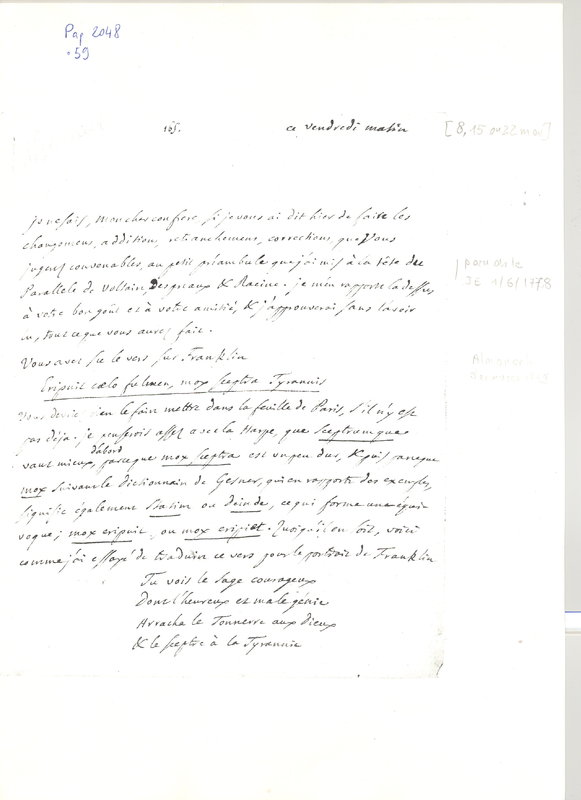 Pap 2048
59
165.
ce vendredi matin
[8, 15 ou 22 mai]
je ne sais, mon cher confrere, si je vous ai dit hier de faire les
changemens, addition, retranchemens, corrections, que vous
jugerez convenables, au petit préambule que j'ai mis à la tête du
Parallele de Voltaire, Despreaux & Racine. je m'en rapporte la dessus
à votre bon goût et à votre amitié, & j'approuverai sans l'avoir
vu, tout ce que vous aurez fait.
paru ds le
JE 1/6/1778
Vous avez su le vers sur Franklin
Eripuit cælo fulmen, mox sceptra Tyrannis
Vous devriez bien le faire mettre dans la feuille de Paris, s'il n'y est
pas déja. je penserois assez avec la Harpe, que sceptrumque
vaut mieux, d'abord parce que mox sceptra est un peu dur, & puis parce que
mox suivant le dictionnaire de Gesner, qui en rapporte des exemples,
signifie également statim ou deinde, ce qui forme une équi-
voque; mox eripuit, ou mox eripiet. Quoiqu'il en soit, voici
comme j'ai essayé de traduire ce vers pour le portrait de Franklin
Tu vois le sage courageux
Dont l'heureux et male génie
Arracha le Tonnerre aux dieux
& le sceptre à la Tyrannie